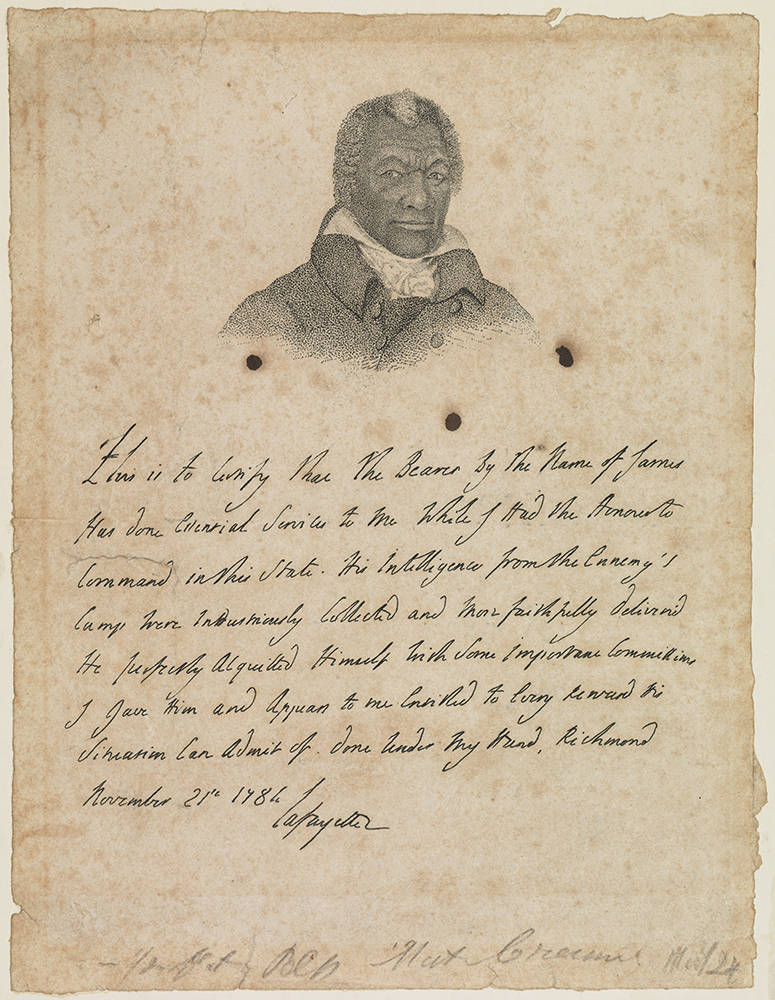 This is to Certify that the Bearer By the Name of James
Has done Essential Services to Me While I Had the Honour to
Command in this State. His Intelligences from the Ennemy's
Camp were Industriously Collected and More faithfully deliver'd
He perfectly Acquitted Himself with Some Important Commissions
I Gave Him and Appears to me Entitled to Every Reward his
Situation Can Admit of. Done Under My Hand, Richmond
November 21st 1784
Lafayette